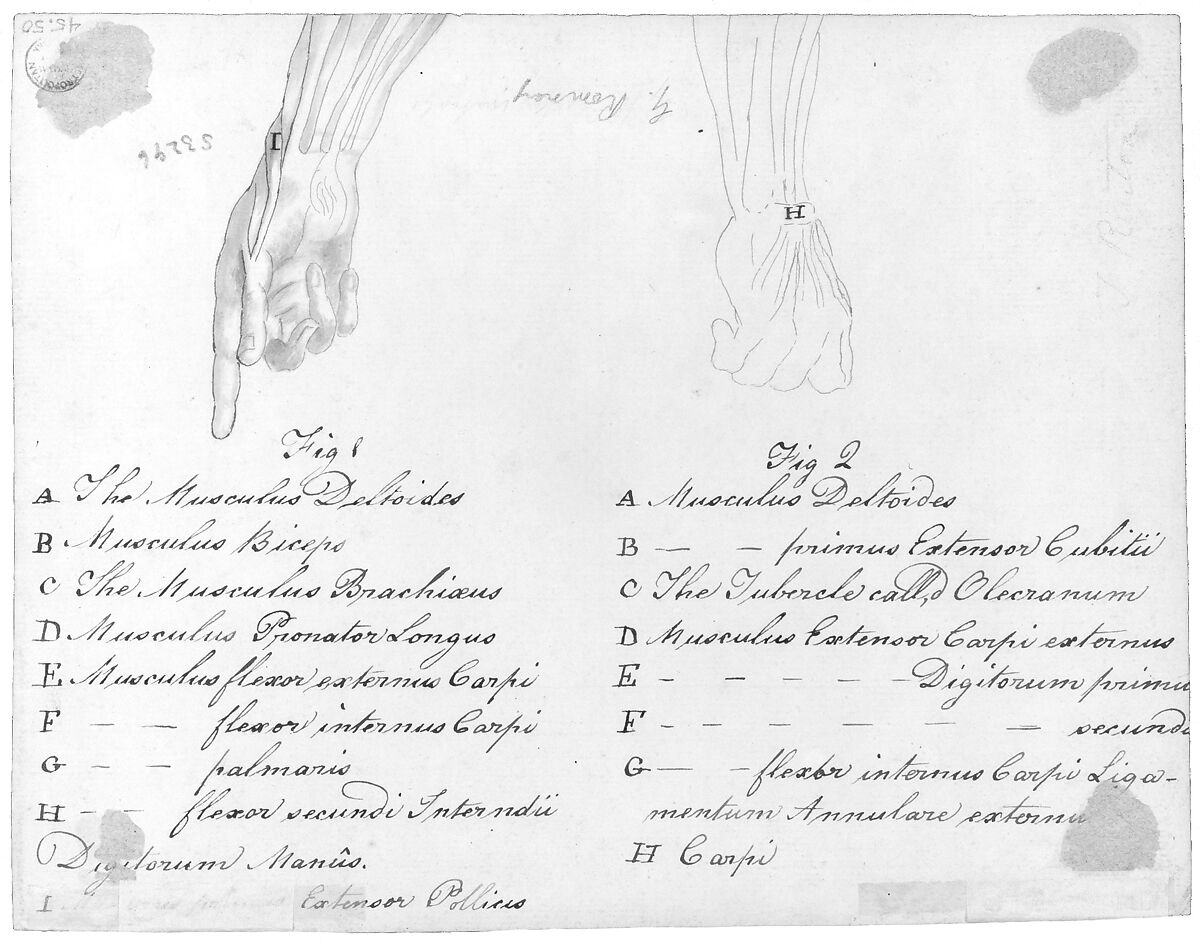 45.50
53296
G. Romney
I
H
Fig 1
A The Musculus Deltoides
B Musculus Biceps
C The Musculus Brachiæus
D Musculus Pronator Longus
E Musculus flexor externus Carpi
F — — flexor internus Carpi
G — — palmaris
H — — flexor secundi Interndii
Digitorum Manûs.
I Extensor Pollicis
Fig 2
A Musculus Deltoides
B — — primus Extensor Cubitii
C The Tubercle call,d Olecranum
D Musculus Extensor Carpi externus
E - - - - - Digitorum primu
F - - - - - - secundi
G — - flexor internus Carpi Liga-
mentum Annulare externu
H Carpi